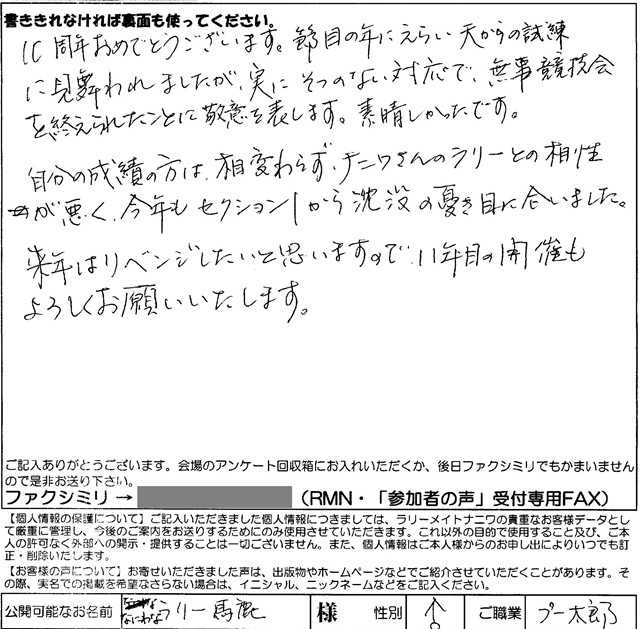 書ききれなければ裏面も使ってください。
10周年おめでとうございます。節目の年にえらい天からの試練
に見舞われましたが、実にそつのない対応で、無事競技会
を終えられたことに敬意を表します。素晴しかったです。
自分の成績の方は、相変わらず、ナニワさんのラリーとの相性
が悪く、今年もセクション1から沈没の憂き目に合いました。
来年はリベンジしたいと思いますので、11年目の開催も
よろしくお願いいたします。
ご記入ありがとうございます。会場のアンケート回収箱にお入れいただくか、後日ファクシミリでもかまいません
ので是非お送り下さい。
ファクシミリ → （RMN・「参加者の声」受付専用FAX）
【個人情報の保護について】ご記入いただきました個人情報につきましては、ラリーメイトナニワの貴重なお客様データとし
て厳重に管理し、今後のご案内をお送りするためにのみ使用させていただきます。これ以外の目的で使用すること及び、ご本
人の許可なく外部への開示・提供することは一切ございません。また、個人情報はご本人様からのお申し出によりいつでも訂
正・削除いたします。
【お客様の声について】お寄せいただきました声は、出版物やホームページなどでご紹介させていただくことがあります。そ
の際、実名での掲載を希望なさらない場合は、イニシャル、ニックネームなどをご記入ください。
公開可能なお名前 なにわなラリー馬鹿 様 性別 ♂ ご職業 プー太郎